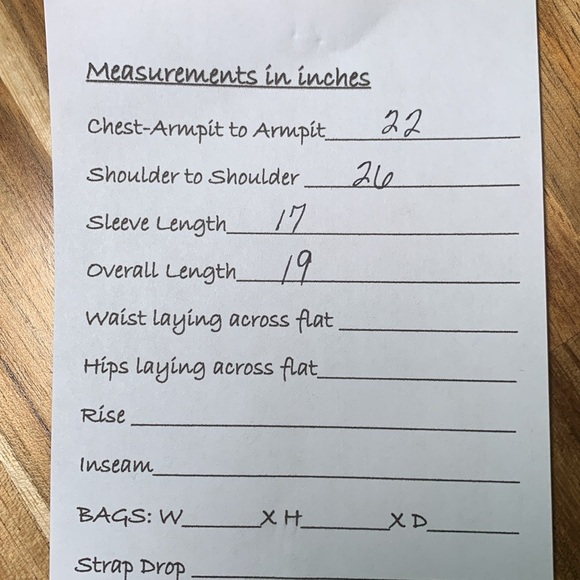 Measurements in inches
Chest-Armpit to Armpit 22
Shoulder to Shoulder 26
Sleeve Length 17
Overall Length 19
Waist laying across flat
Hips laying across flat
Rise
Inseam
BAGS: W______X H______X D______
Strap Drop